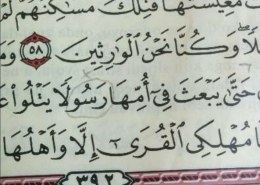 مَعِيشَتَهَا فَتِلْكَ مَسَٰكِنُهُمْ لَمْ
وَكُنَّا نَحْنُ الْوَارِثِينَ ۝٥٨
حَتَّىٰ يَبْعَثَ فِي أُمِّهَا رَسُولًا يَتْلُوا
مُهْلِكِي الْقُرَىٰ إِلَّا وَأَهْلُهَا
٣٩٢